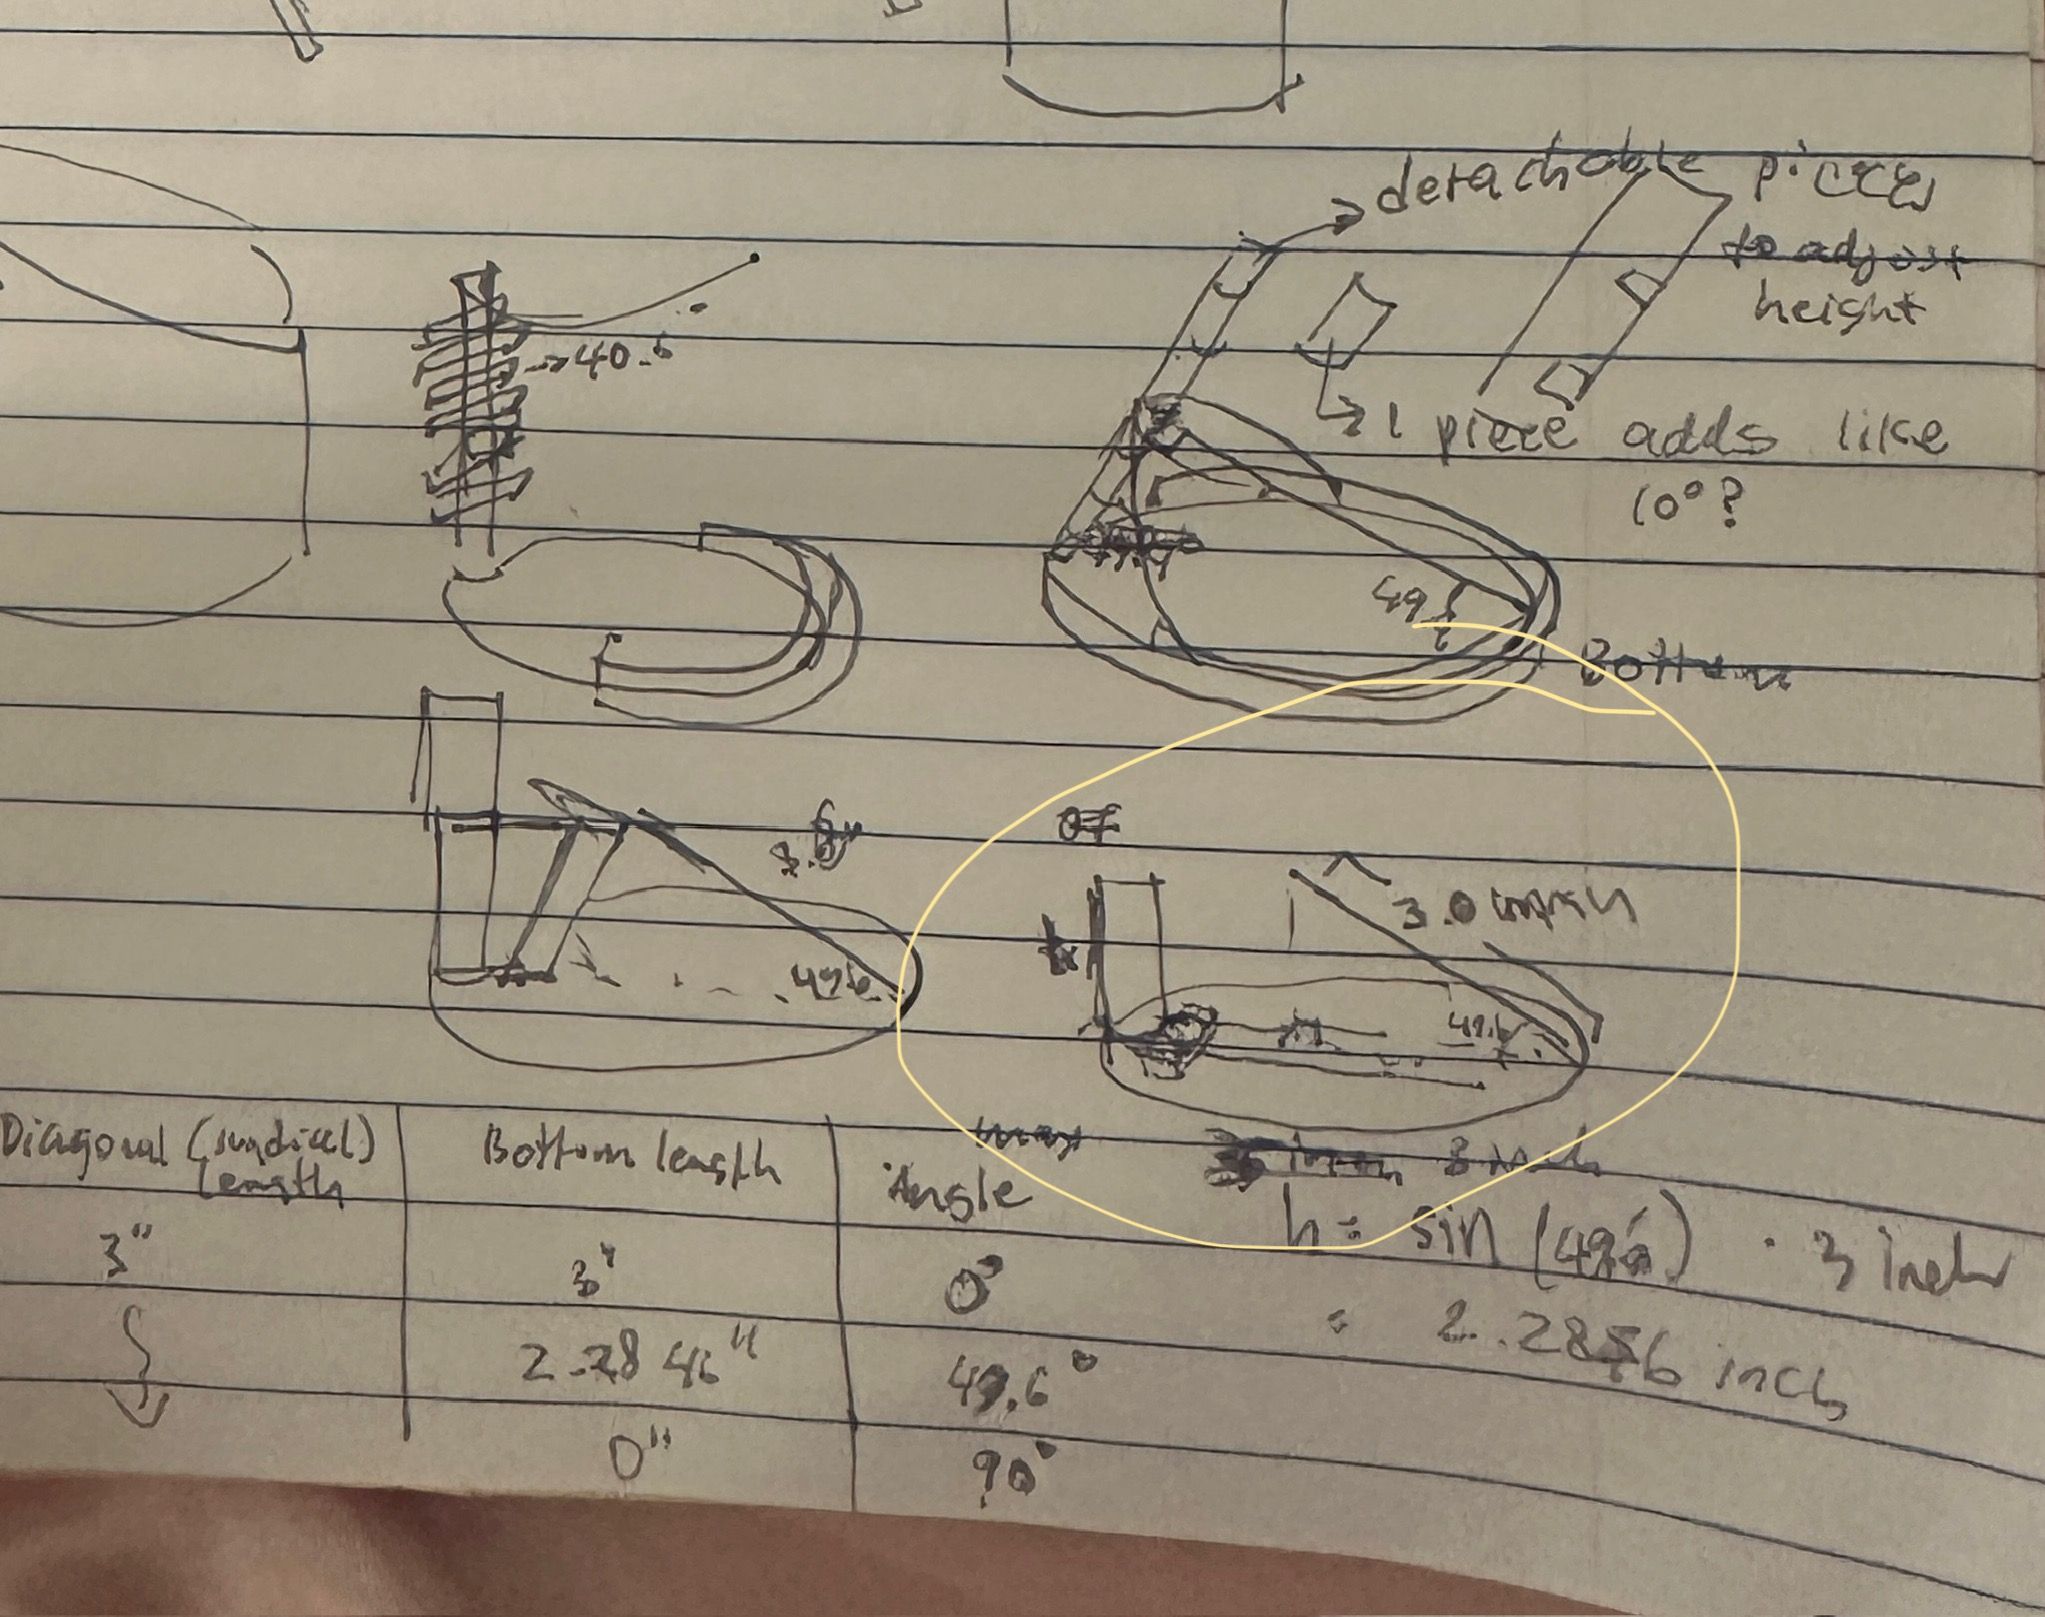 detachable pieces
to adjust
height
→40.6
→ 1 piece adds like
10°?
49.6
Bottom
8.6"
49.6
or
3.0 inch
49.6
Diagonal
length
Bottom length
max
Angle
3 inch
h = sin (49.6) · 3 inch
3" 3" 0°
= 2.2846 inch
2.2846" 49.6°
0" 90°